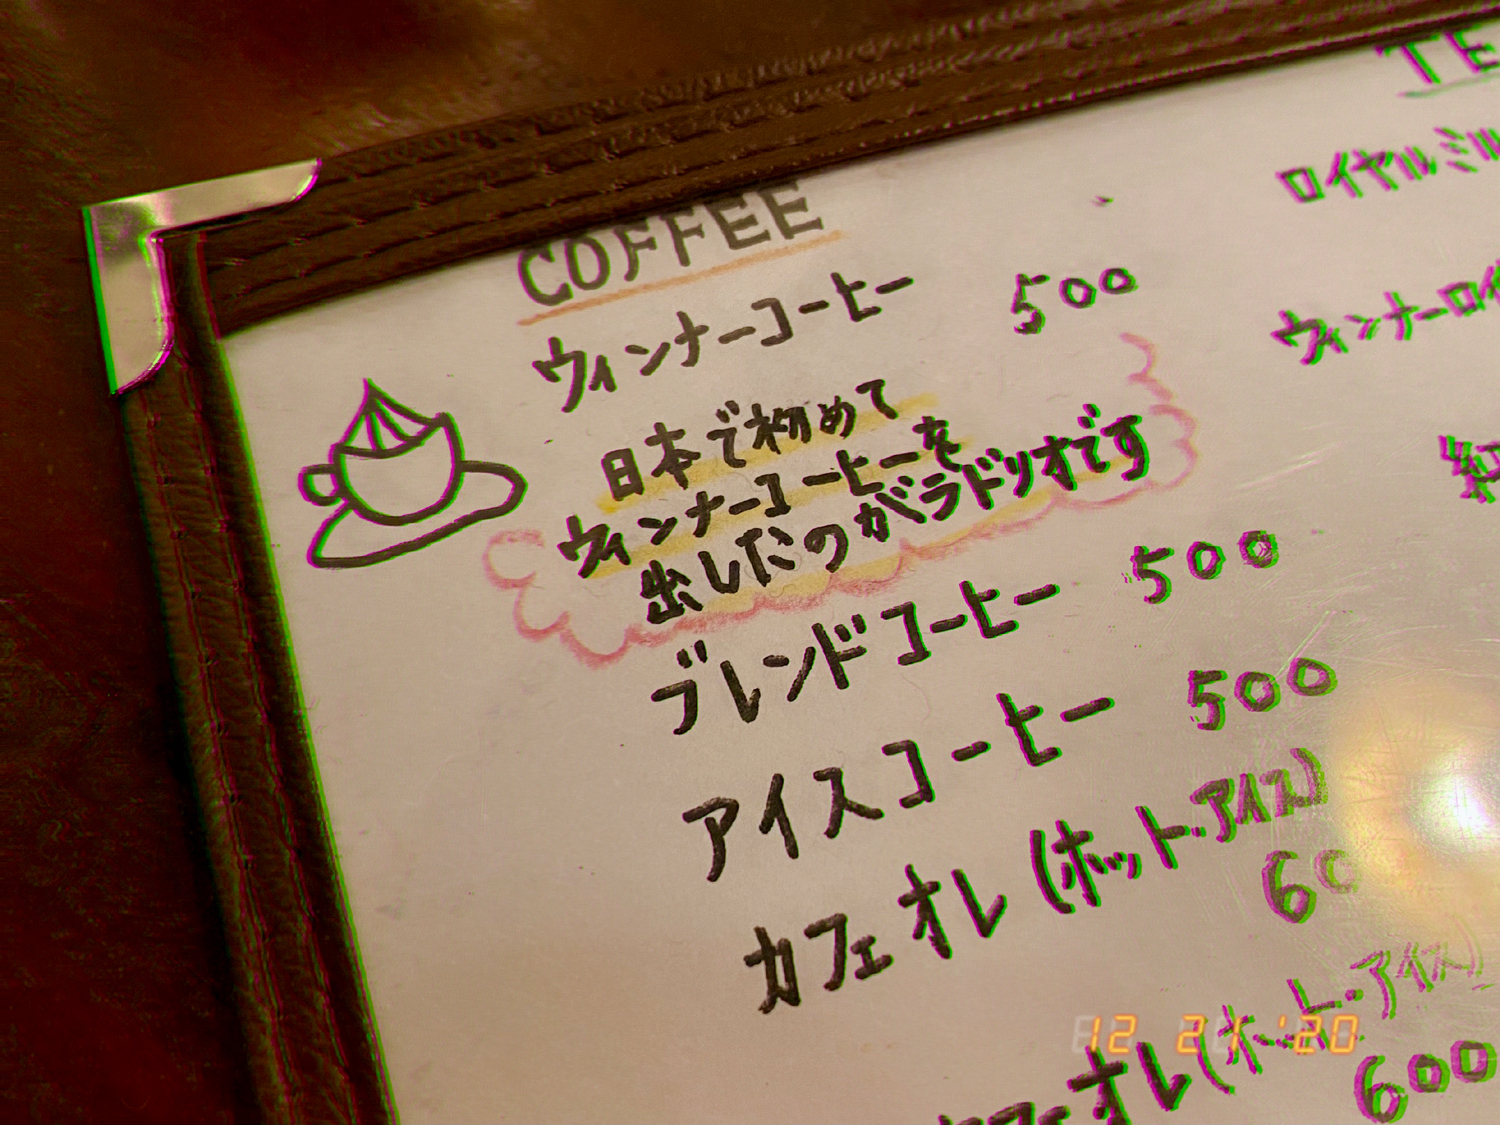 COFFEE
ウィンナーコーヒー 500
日本で初めて
ウィンナーコーヒーを
出したのがラドリオです
ブレンドコーヒー 500
アイスコーヒー 500
カフェオレ(ホット・アイス)
60
オレ(ホット・アイス)
600
TE
ロイヤルミル
ウィンナーロイ
紅
12 21 '20